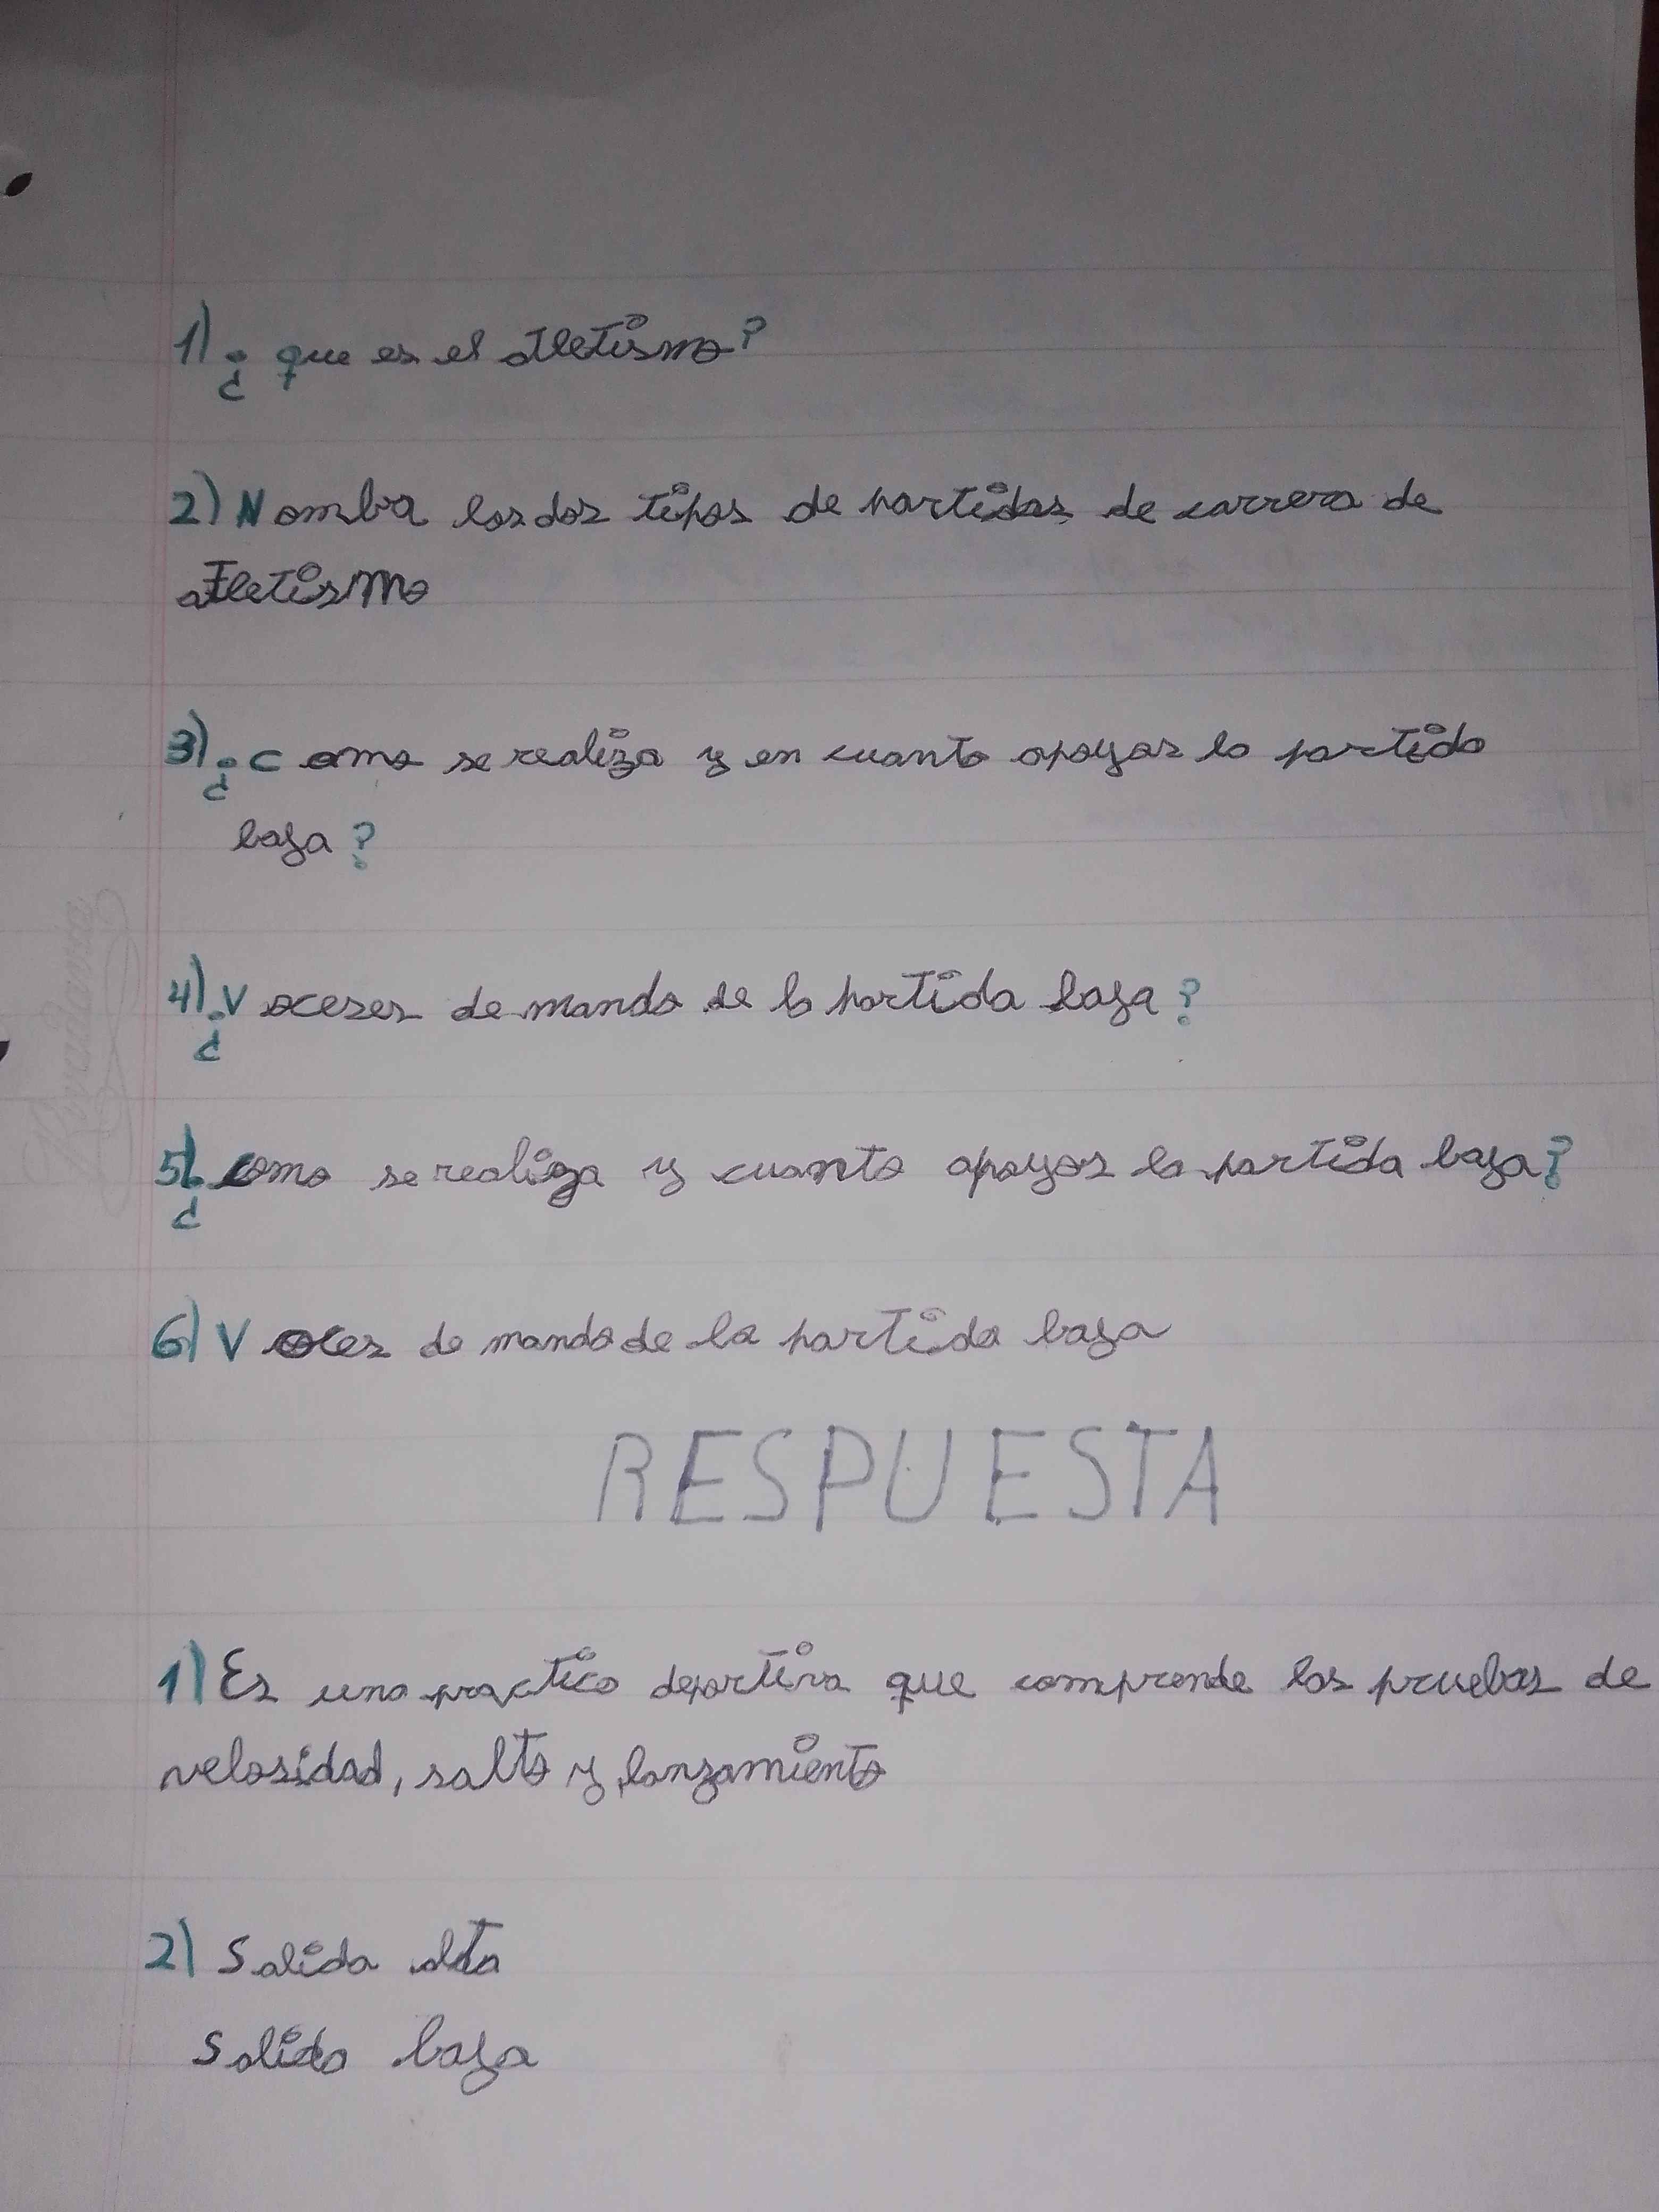 1) ¿que es el atletismo?
2) Nomba los dos tipos de partidas de carrera de
atletismo
3) ¿Como se realiza y en cuanto apoyos la partida
baja?
4) ¿Voceses de mando de la partida baja?
5) ¿Como se realiza y cuanto apoyos la partida baja?
6) Voces de mando de la partida baja
RESPUESTA
1) Es una practica deportiva que comprende las pruebas de
velosidad, salto y lanzamiento
2) Salida alta
Salida baja